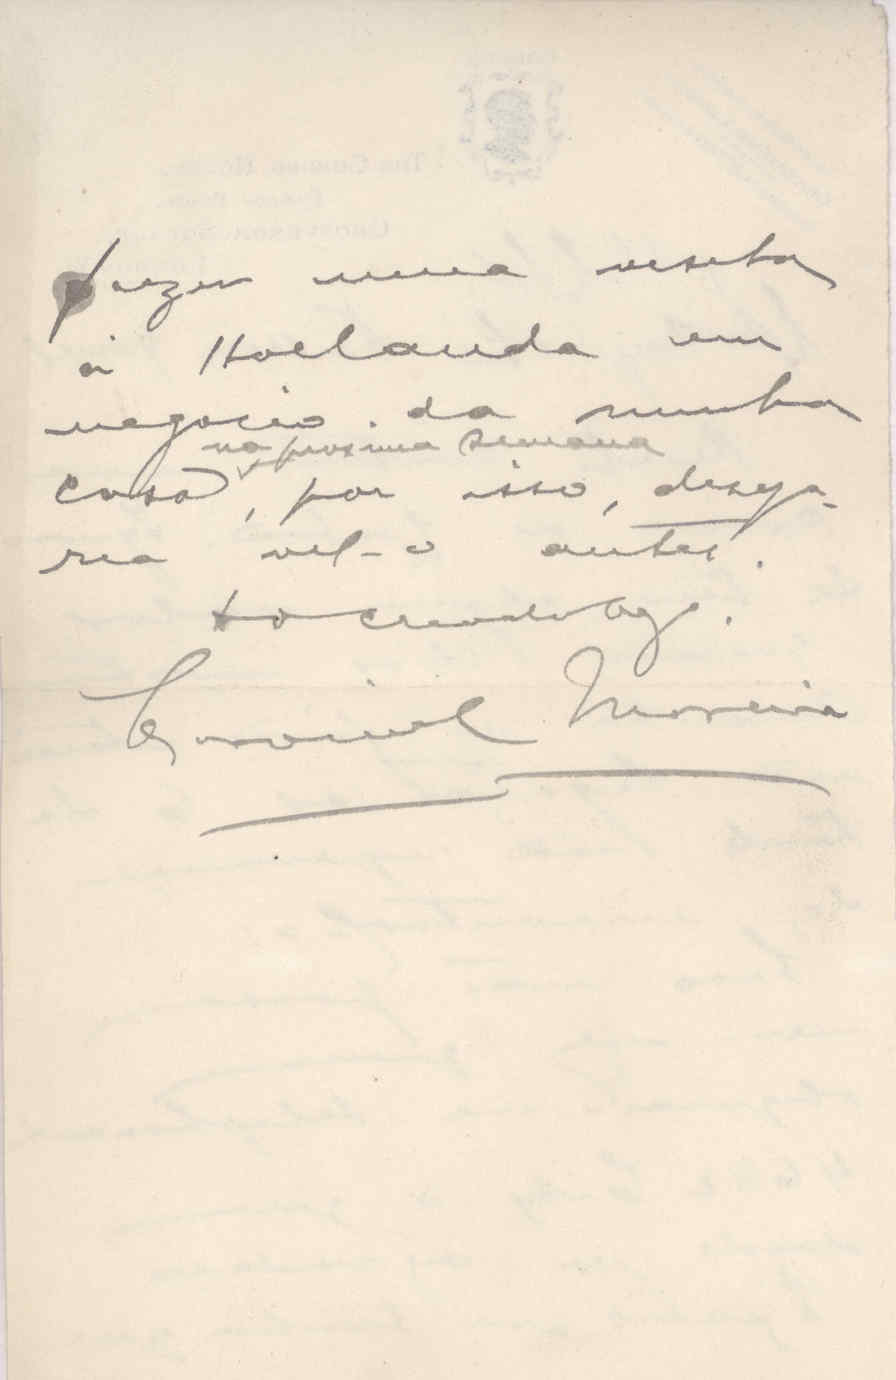 fazer uma visita
á Hollanda em
negocio da minha
na proxima semana
casa, por isso, deseja-
ria vel-o antes.
Moreira